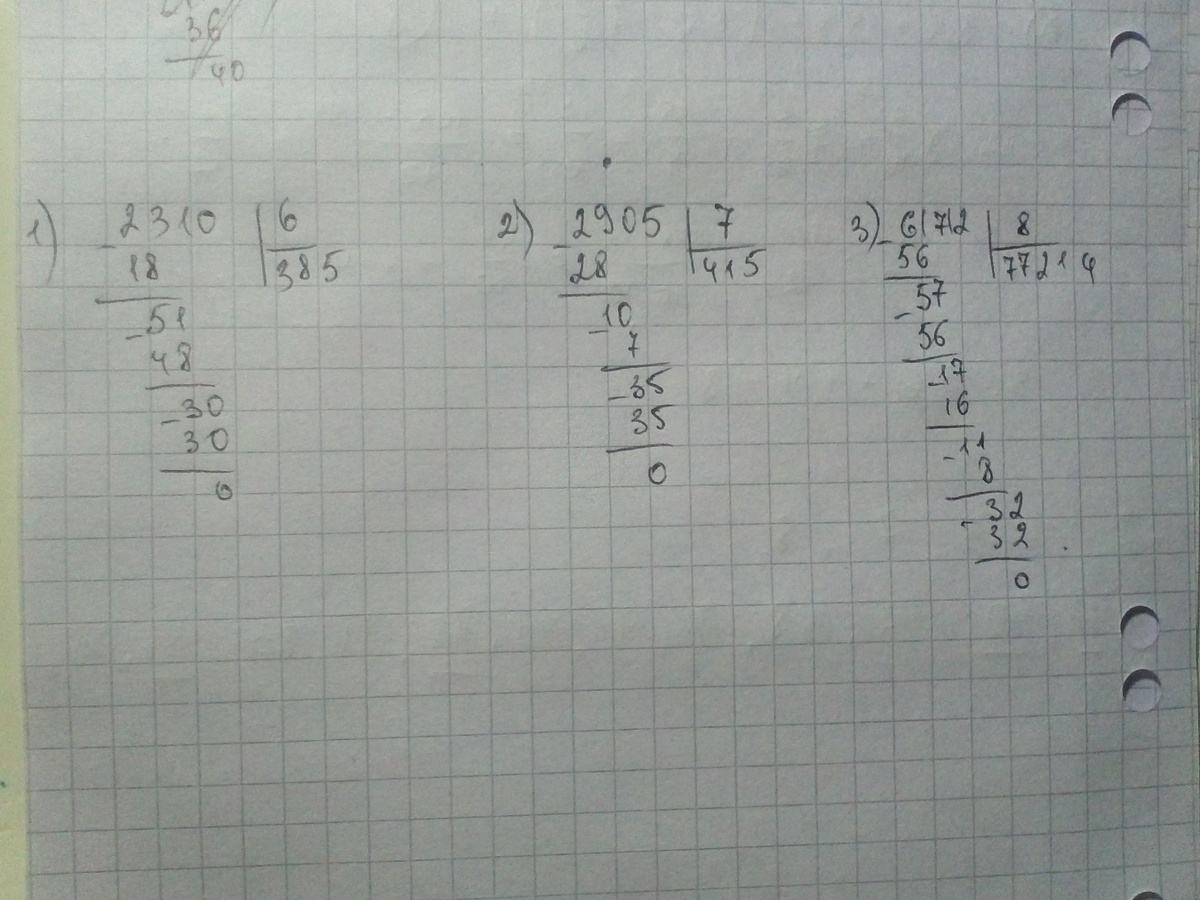 36
40
1) 2310 6
- 18 385
- 51
48
- 30
30
0
2) 2905 7
- 28 415
- 10
7
- 35
35
0
3) 61712 8
- 56 77214
- 57
56
- 17
16
- 11
8
- 32
32
0